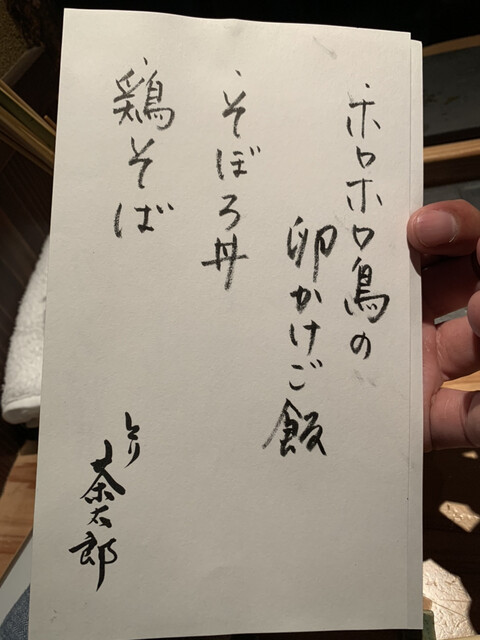 ホロホロ鳥の
卵かけご飯
そぼろ丼
鶏そば
とり
茶太郎